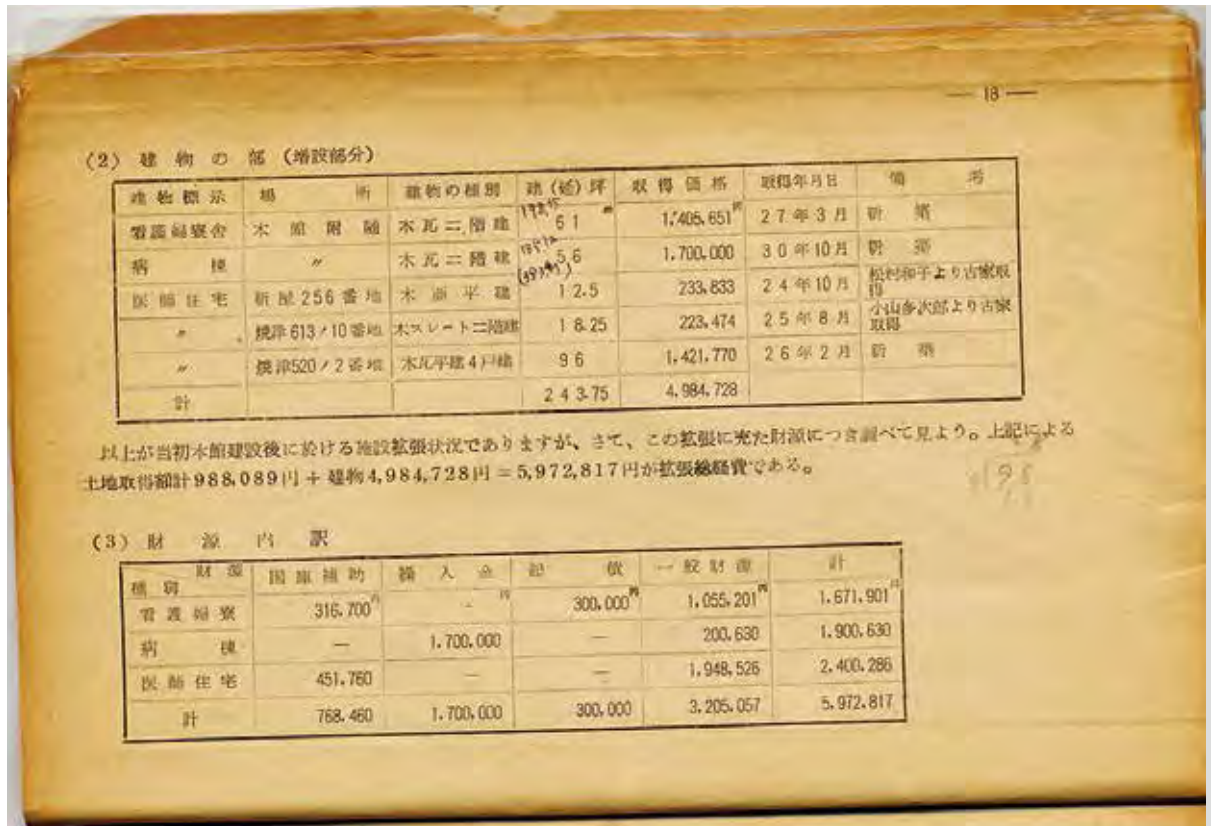 — 18 —
(2) 建物の部 (増設部分)
建物標示 場所 建物の種別 建(延)坪 取得価格 取得年月日 備考
看護婦寮舎 本館附随 木瓦二階建 61 1,405,651円 27年3月 新築
病棟 〃 木瓦二階建 56 1,700,000 30年10月 新築
医師住宅 新屋256番地 木 平建 12.5 233,833 24年10月 松村和子より古家取得
〃 焼津613ノ10番地 木スレート二階建 18.25 223,474 25年8月 小山多次郎より古家取得
〃 焼津520ノ2番地 木瓦平建4戸建 96 1,421,770 26年2月 新築
計 243.75 4,984,728
以上が当初本館建設後に於ける施設拡張状況でありますが、さて、この拡張に充た財源につき調べて見よう。上記による
土地取得額計988,089円+建物4,984,728円=5,972,817円が拡張総経費である。
(3) 財源内訳
種別 財源 国庫補助 繰入金 起債 一般財源 計
看護婦寮 316,700円 - 円 300,000円 1,055,201円 1,671,901円
病棟 — 1,700,000 — 200,630 1,900,630
医師住宅 451,760 — — 1,948,526 2,400,286
計 768,460 1,700,000 300,000 3,205,057 5,972,817